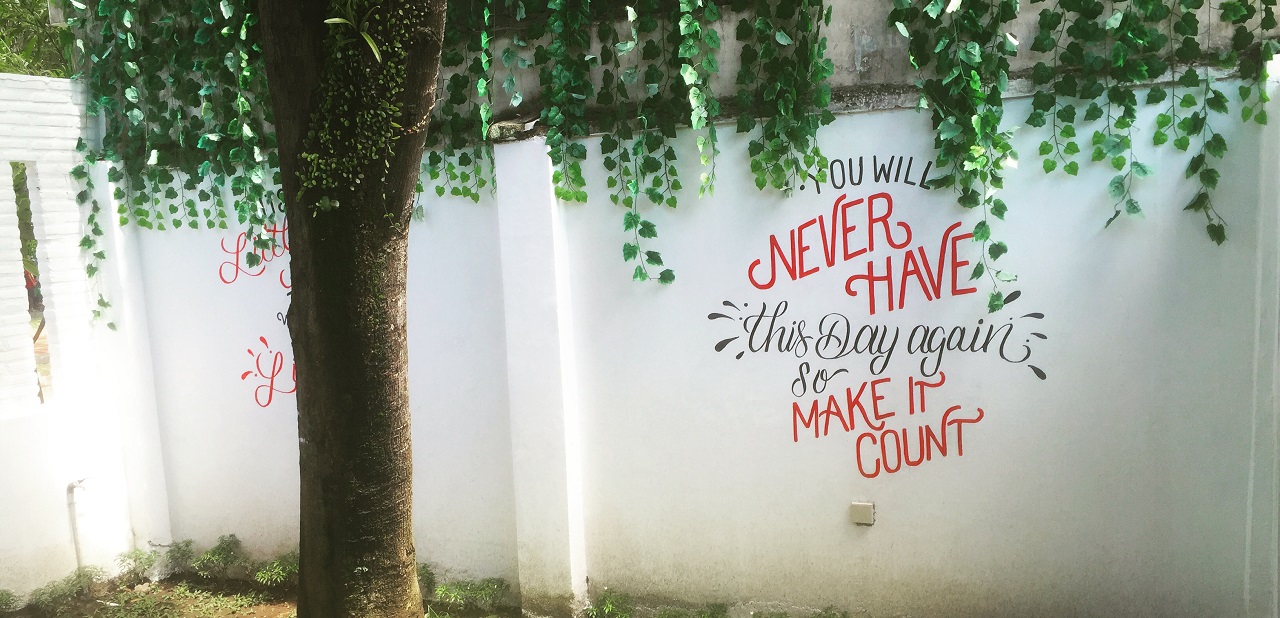 YOU WILL
NEVER
HAVE
this Day again
so
MAKE IT
COUNT